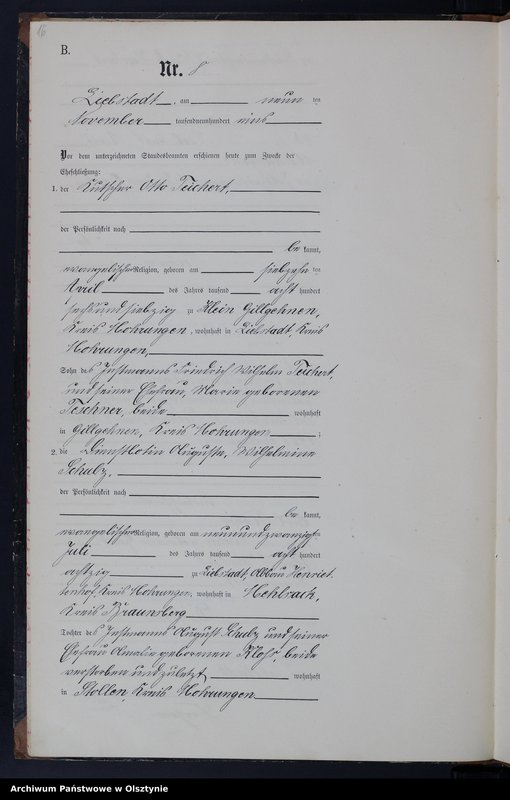 16
B.
Nr. 8
Liebstadt, am neun ten
November tausendneunhundert eins
Vor dem unterzeichneten Standesbeamten erschienen heute zum Zwecke der
Eheschließung:
1. der Kutscher Otto Teichert,
der Persönlichkeit nach
be kannt,
evangelischer Religion, geboren am siebzehn ten
April des Jahres tausend acht hundert
sechsundsiebzig zu Klein Gillgehnen,
Kreis Mohrungen, wohnhaft in Liebstadt, Kreis
Mohrungen,
Sohn des Instmanns Friedrich Wilhelm Teichert,
und seiner Ehefrau, Marie geborenen
Teschner, beide wohnhaft
in Gillgehnen, Kreis Mohrungen ;
2. die Dienstbotin Auguste, Wilhelmine
Schulz,
der Persönlichkeit nach
be kannt,
evangelischer Religion, geboren am neunundzwanzigsten
Juli des Jahres tausend acht hundert
achtzig zu Liebstadt, Abbau Henriet-
tenhof, Kreis Mohrungen, wohnhaft in
Kreis Braunsberg
Tochter des Instmanns August Schulz und seiner
Ehefrau Amalie geborenen Klohs, beide
verstorben und zuletzt wohnhaft
in Stollen, Kreis Mohrungen
Archiwum Państwowe w Olsztynie